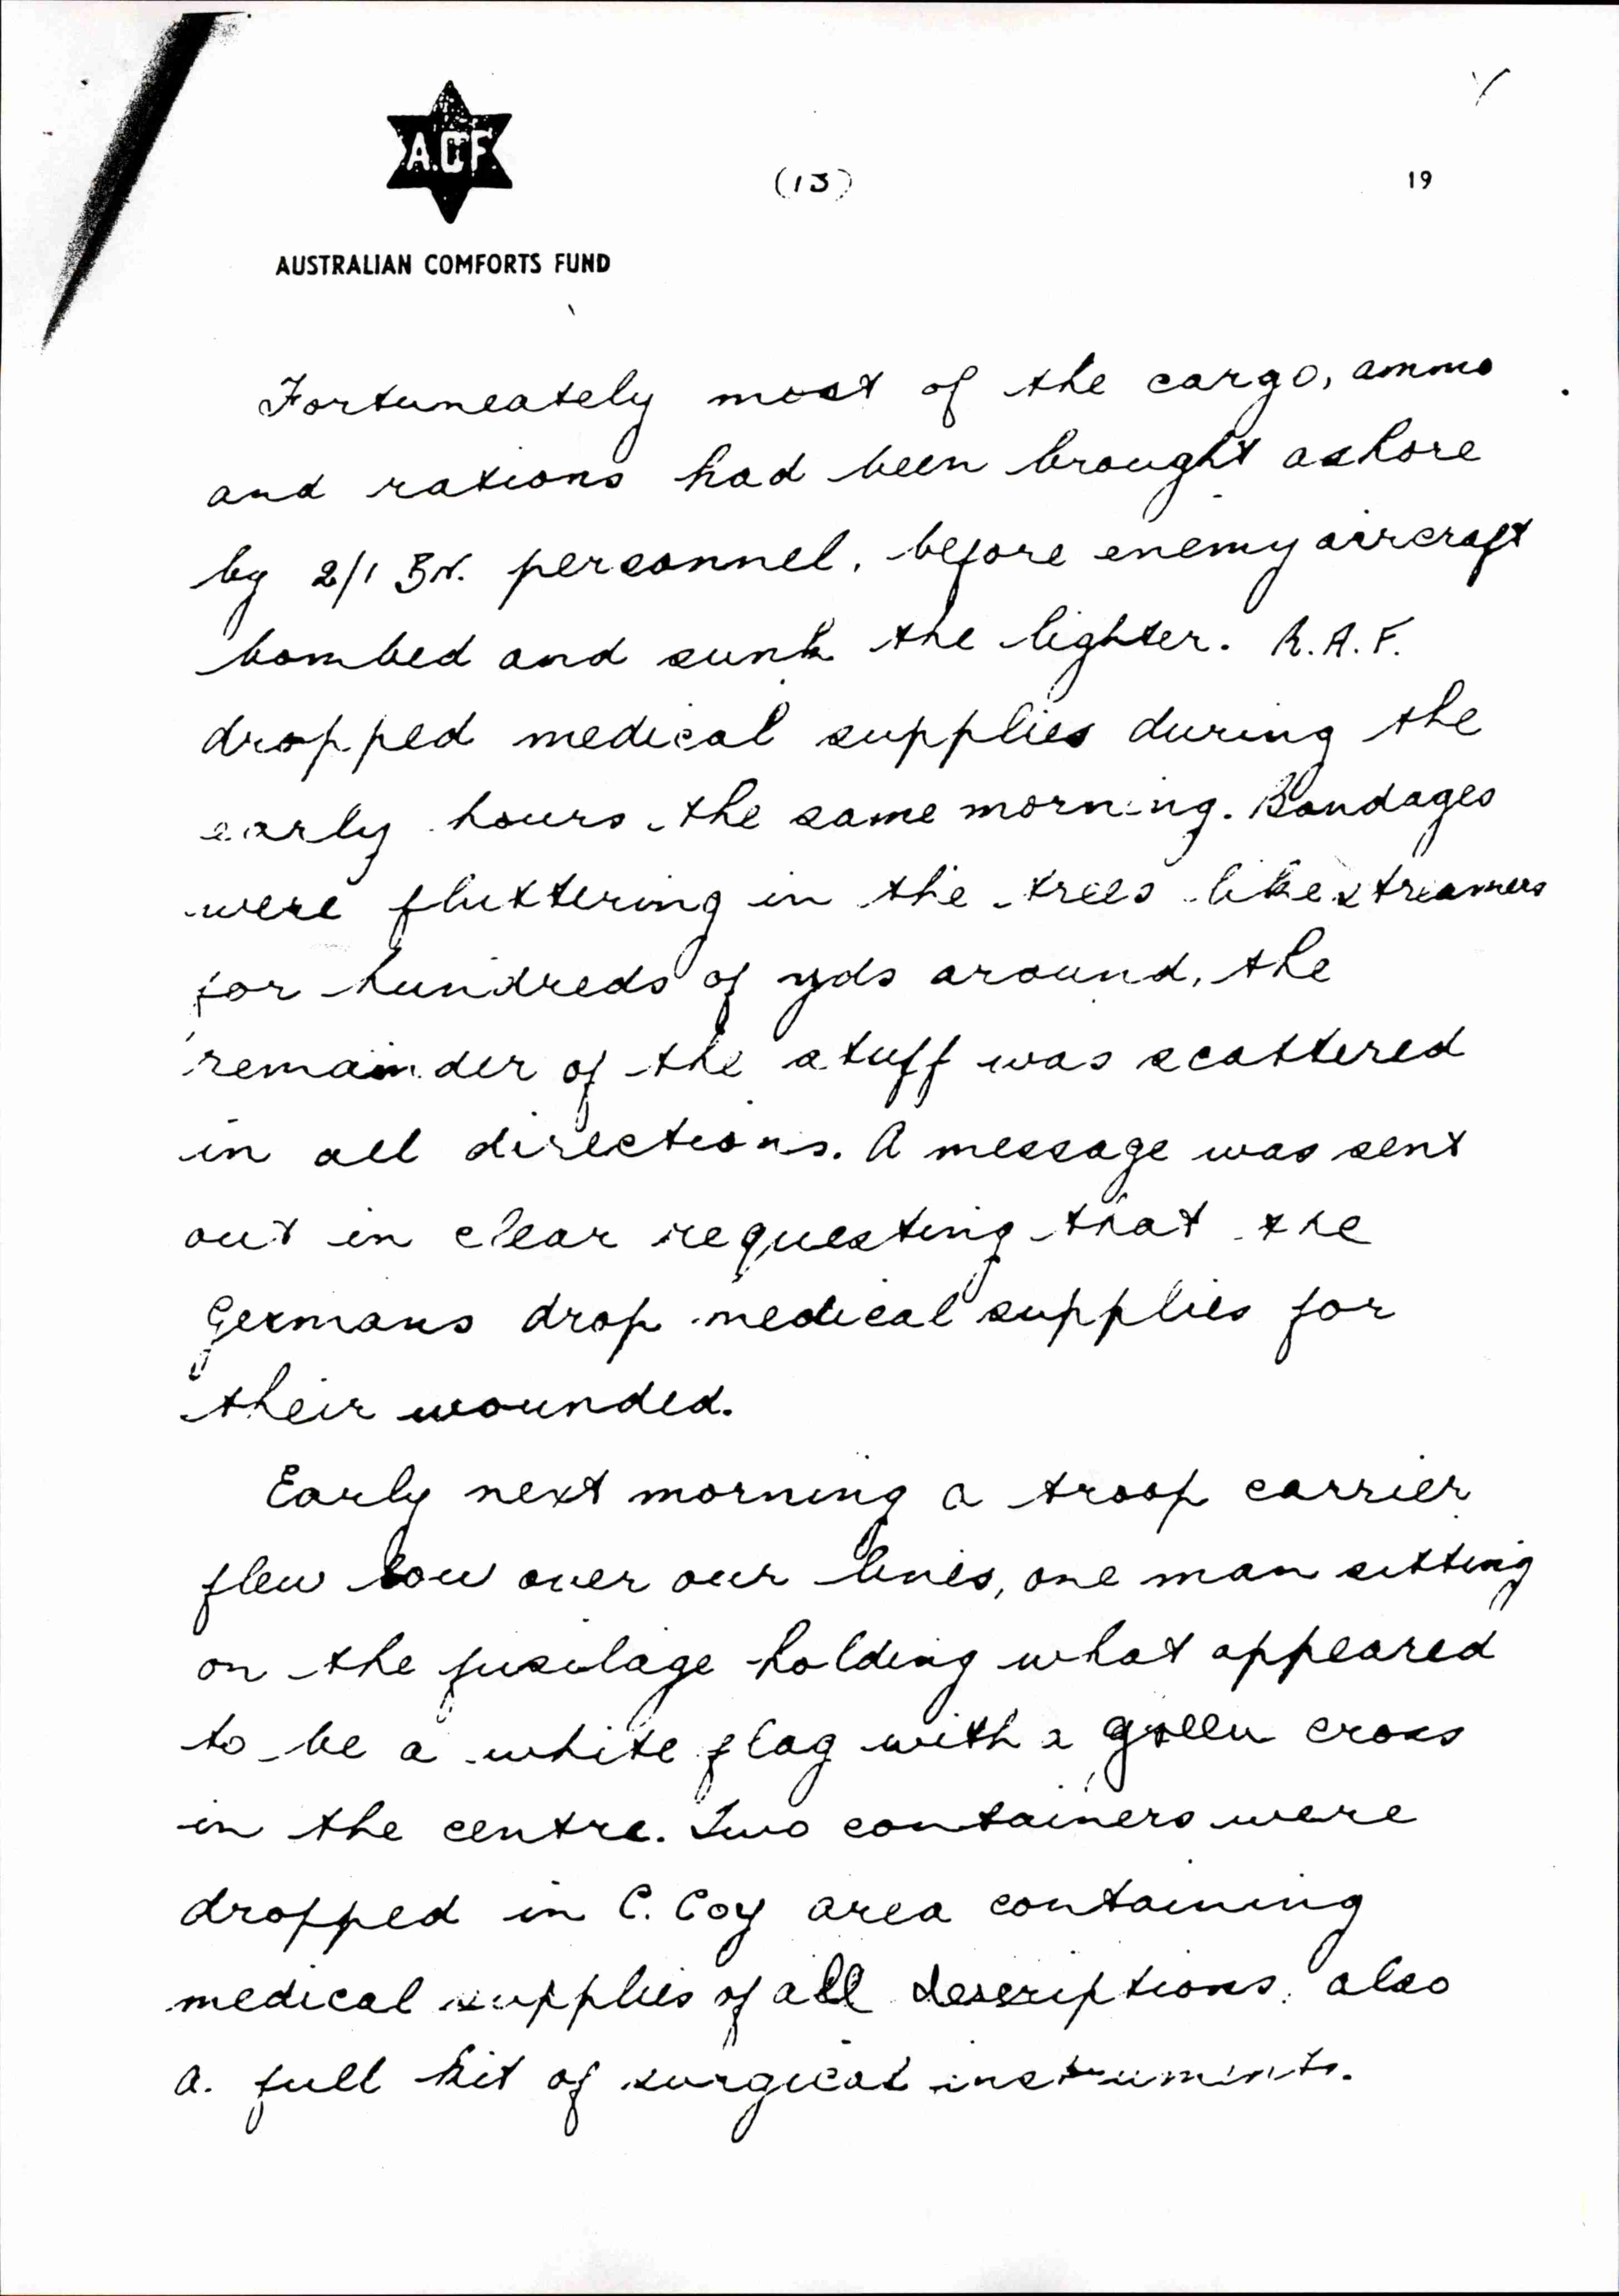 A.C.F.
(13)
19
AUSTRALIAN COMFORTS FUND
Fortuneately most of the cargo, ammo
and rations had been brought ashore
by 2/1 BN. personnel, before enemy aircraft
bombed and sunk the lighter. R.A.F.
dropped medical supplies during the
early hours the same morning. Bandages
were fluttering in the trees like streamers
for hundreds of yds around, the
remainder of the stuff was scattered
in all directions. A message was sent
out in clear requesting that the
Germans drop medical supplies for
their wounded.
Early next morning a troop carrier
flew low over our lines, one man sitting
on the fusilage holding what appeared
to be a white flag with a green cross
in the centre. Two containers were
dropped in C. Coy area containing
medical supplies of all descriptions, also
a. full kit of surgical instruments.